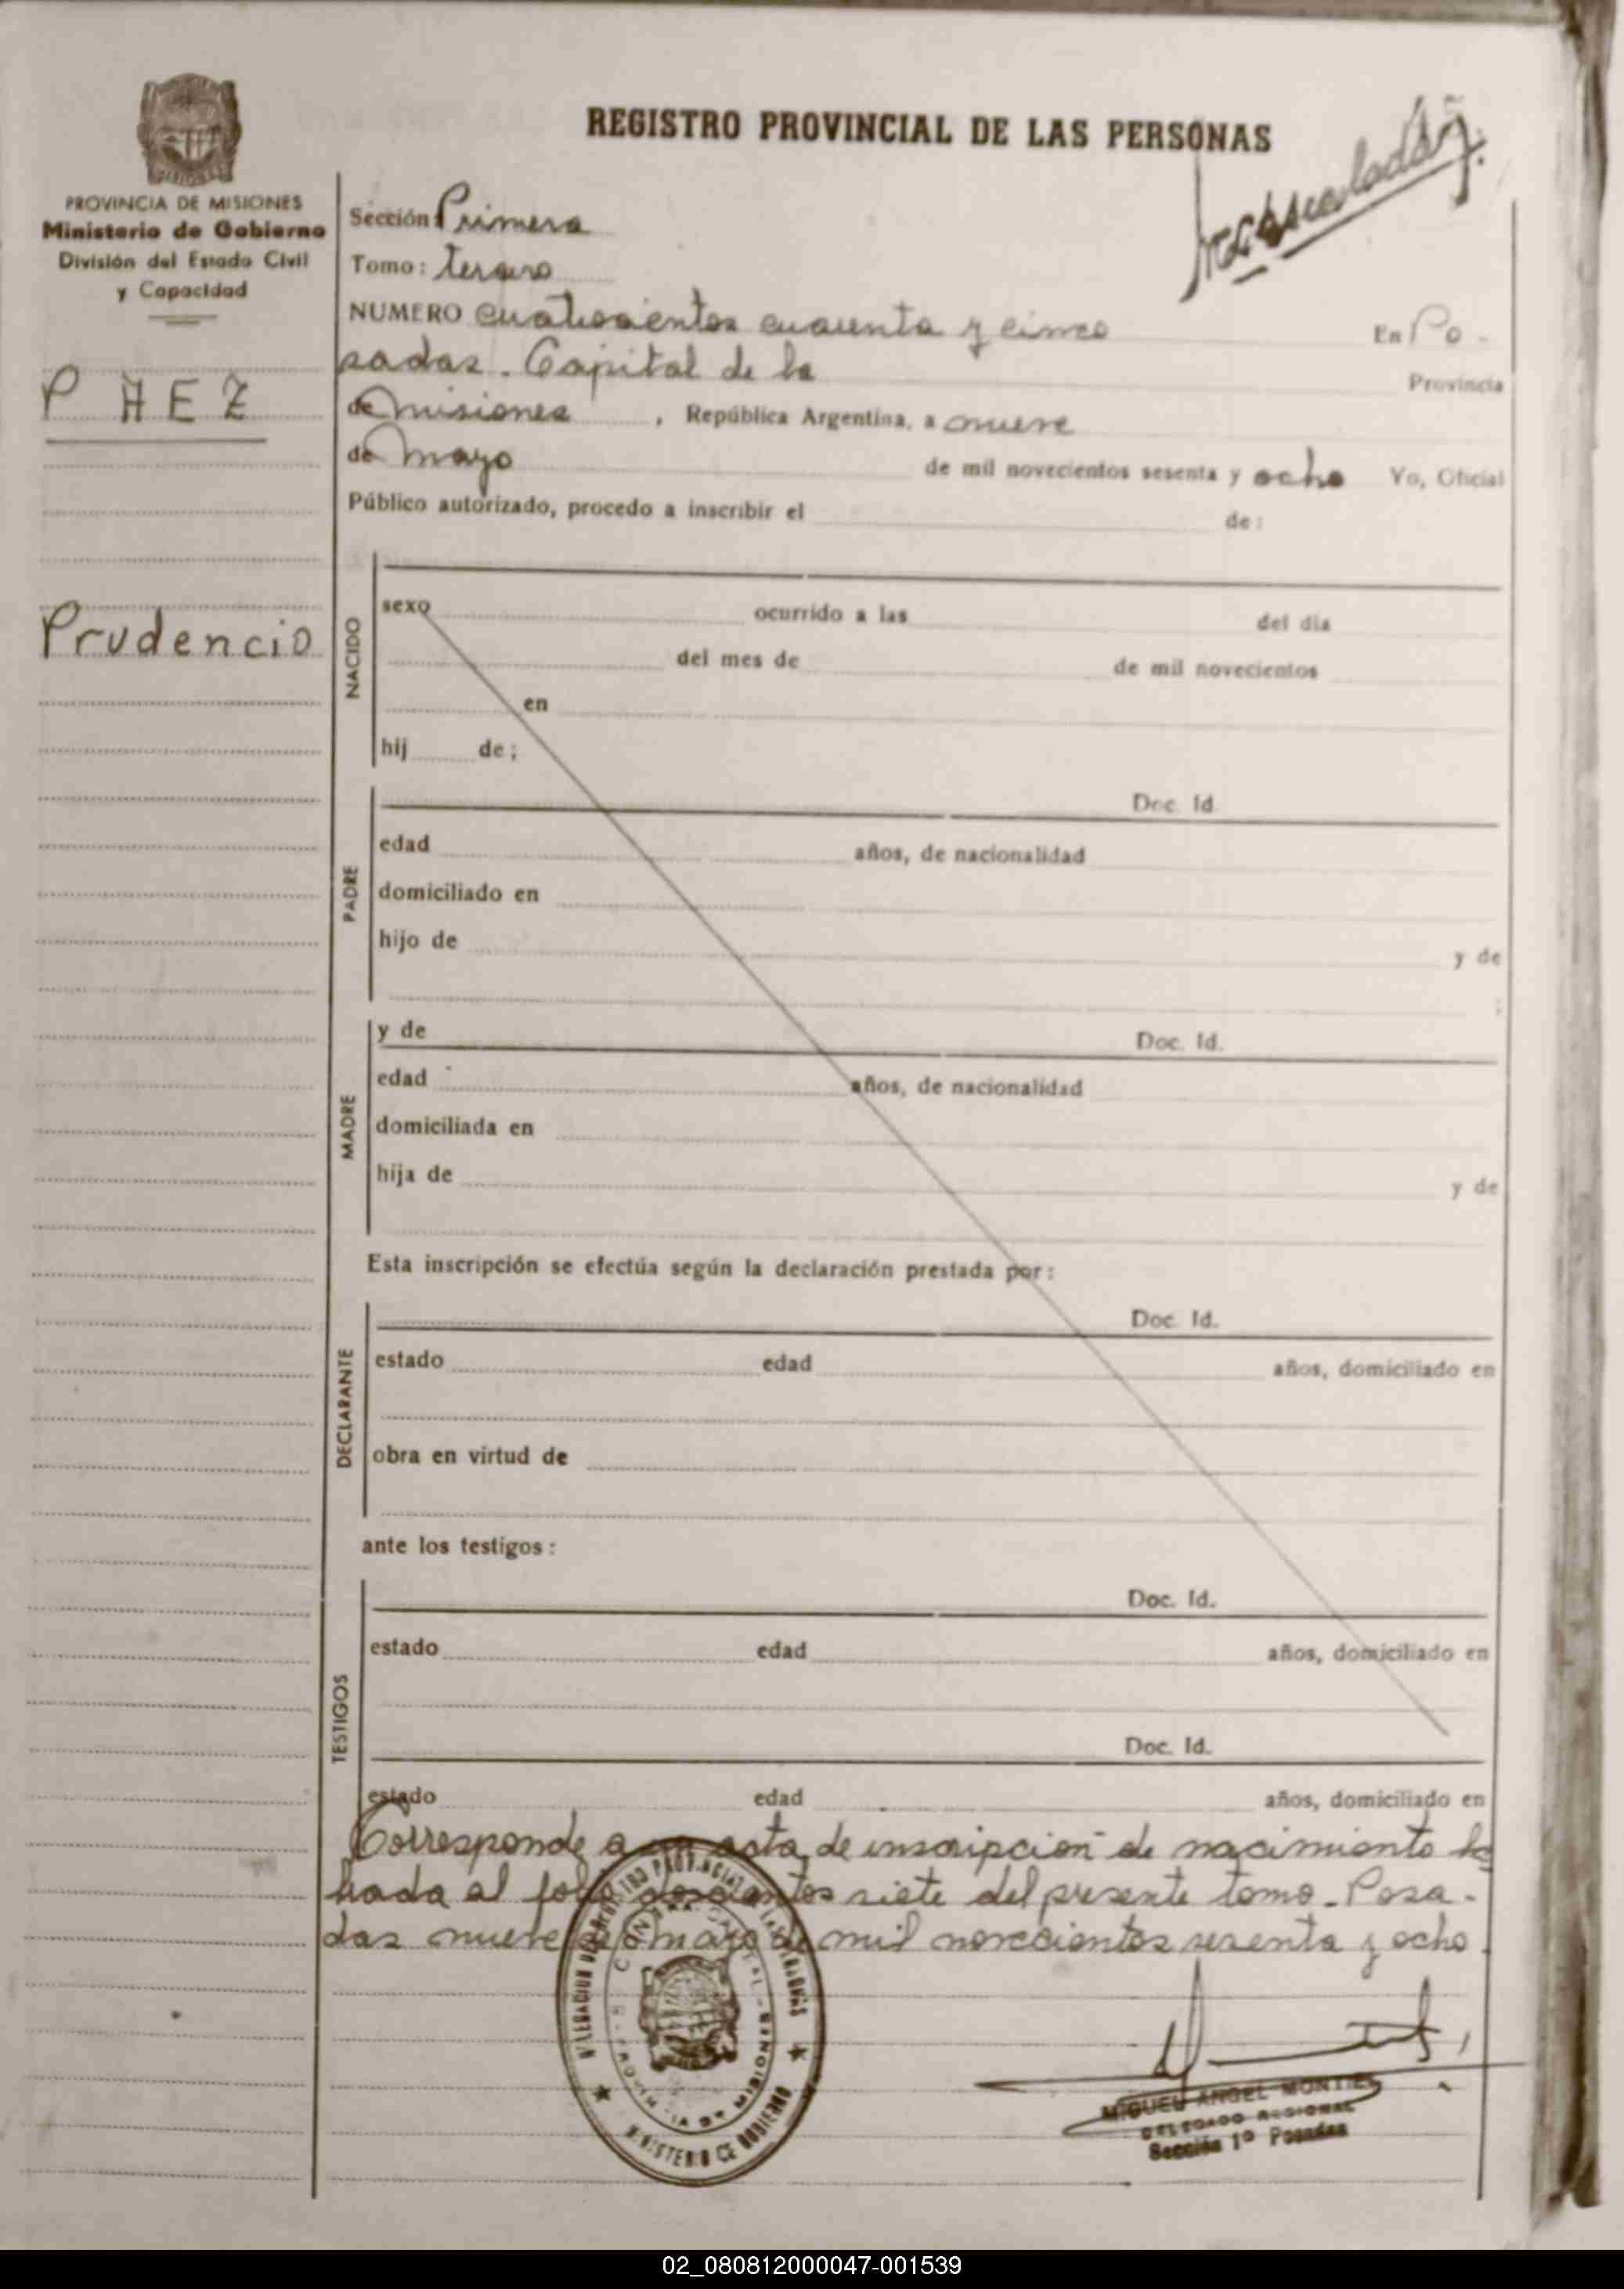 REGISTRO PROVINCIAL DE LAS PERSONAS
PROVINCIA DE MISIONES
Ministerio de Gobierno
División del Estado Civil
y Capacidad
PAEZ
Prudencio
Sección: Primera
Tomo: tercero
NUMERO cuatrocientos cuarenta y cinco En Po-
sadas. Capital de la Provincia
de misiones, República Argentina, a nueve
de mayo de mil novecientos sesenta y ocho Yo, Oficial
Público autorizado, procedo a inscribir el de:
NACIDO
sexo ocurrido a las del día
del mes de de mil novecientos
en
hij de;
PADRE
Doc. Id.
edad años, de nacionalidad
domiciliado en
hijo de y de
;
MADRE
y de Doc. Id.
edad años, de nacionalidad
domiciliada en
hija de y de
Esta inscripción se efectúa según la declaración prestada por:
DECLARANTE
Doc. Id.
estado edad años, domiciliado en
obra en virtud de
ante los testigos:
TESTIGOS
Doc. Id.
estado edad años, domiciliado en
Doc. Id.
estado edad años, domiciliado en
Corresponde a acta de inscripción de nacimiento la
brada al folio doscientos siete del presente tomo. Posa-
das nueve de mayo de mil novecientos sesenta y ocho.
MINISTERIO DE GOBIERNO
PROVINCIA DE MISIONES
MIGUEL ANGEL MONTIEL
DELEGADO REGIONAL
Sección 1º Posadas
02_080812000047-001539